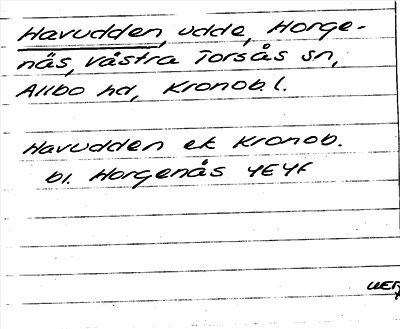 Havudden, udde, Horge-
näs, Västra Torsås sn,
Allbo hd, Kronob. l.
Havudden ek Kronob.
bl. Horgenäs 4E4f